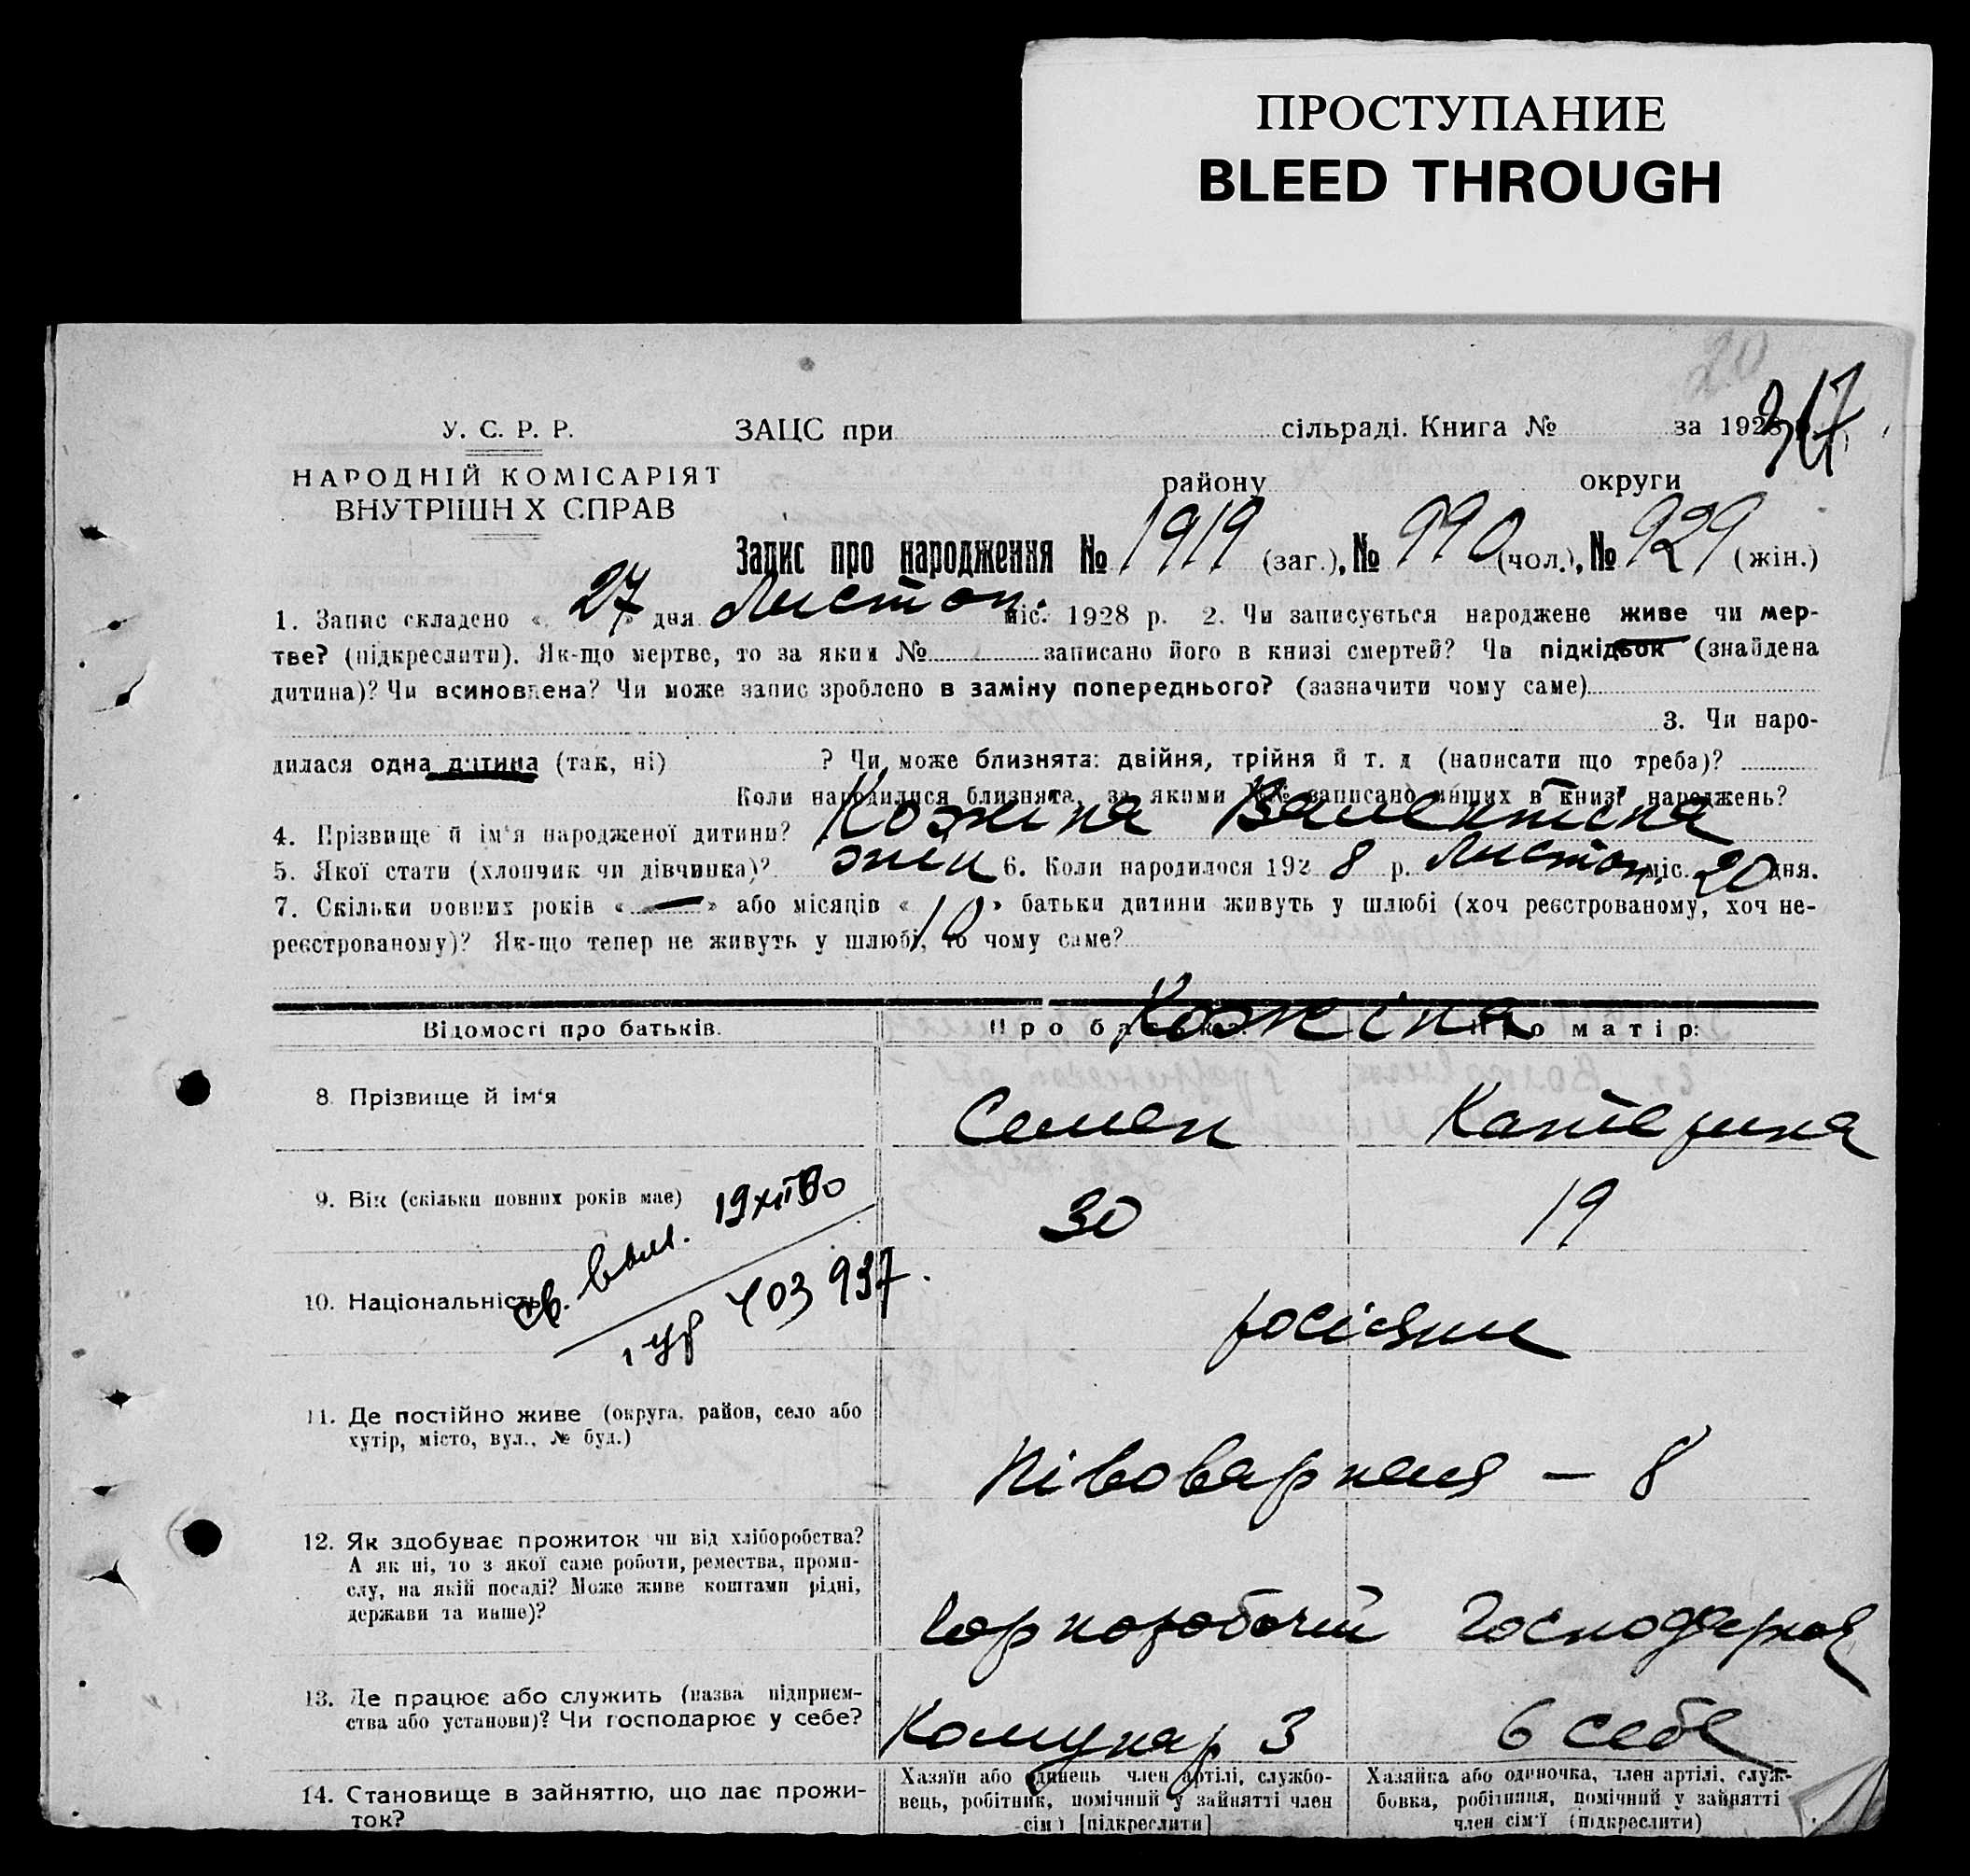 ПРОСТУПАНИЕ
BLEED THROUGH
20
317
У. С. Р. Р.
НАРОДНІЙ КОМІСАРІЯТ
ВНУТРІШН Х СПРАВ
ЗАЦС при сільраді. Книга № за 1928
району округи
Запис про народження № 1919 (заг.), № 990 (чол.), № 929 (жін.)
1. Запис складено « 27 » дня Листоп. міс. 1928 р. 2. Чи записується народжене живе чи мер-
тве? (підкреслити). Як-що мертве, то за яким № записано його в книзі смертей? Чи підкідьок (знайдена
дитина)? Чи всиновлена? Чи може запис зроблено в заміну попереднього? (зазначити чому саме)
3. Чи наро-
дилася одна дитина (так, ні) ? Чи може близнята: двійня, трійня й т. д (написати що треба)?
Коли народилися близнята, за якими №№ записано инших в книзі народжень?
4. Прізвище й ім'я народженої дитини? Кожіна Валентина
5. Якої стати (хлопчик чи дівчинка)? жін 6. Коли народилося 1928 р. Листоп. міс. 20 дня.
7. Скільки повних років « — » або місяців « 10 » батьки дитини живуть у шлюбі (хоч реєстрованому, хоч не-
реєстрованому)? Як-що тепер не живуть у шлюбі, то чому саме?
Відомості про батьків. Про батька: Про матір:
Кожіна
8. Прізвище й ім'я Семен Катерина
9. Вік (скільки повних років має) 30 19
10. Національність росіяни
св. выл. 19 XII
403937.
11. Де постійно живе (округа, район, село або
хутір, місто, вул., № буд.)
Півоварная — 8
12. Як здобуває прожиток чи від хліборобства?
А як ні, то з якої саме роботи, ремества, проми-
слу, на якій посаді? Може живе коштами рідні,
держави та инше)?
Чорноробочий
13. Де працює або служить (назва підприєм-
ства або установи)? Чи господарює у себе?
Комунар 3 в себе
14. Становище в зайняттю, що дає прожи-
ток?
Хазяїн або одинець член артілі, службо-
вець, робітник, помічний у зайнятті член
сім'ї [підкреслити]
Хазяйка або одиночка, член артілі, служ-
бовка, робітниця, помічний у зайнятті
член сім'ї (підкреслити)